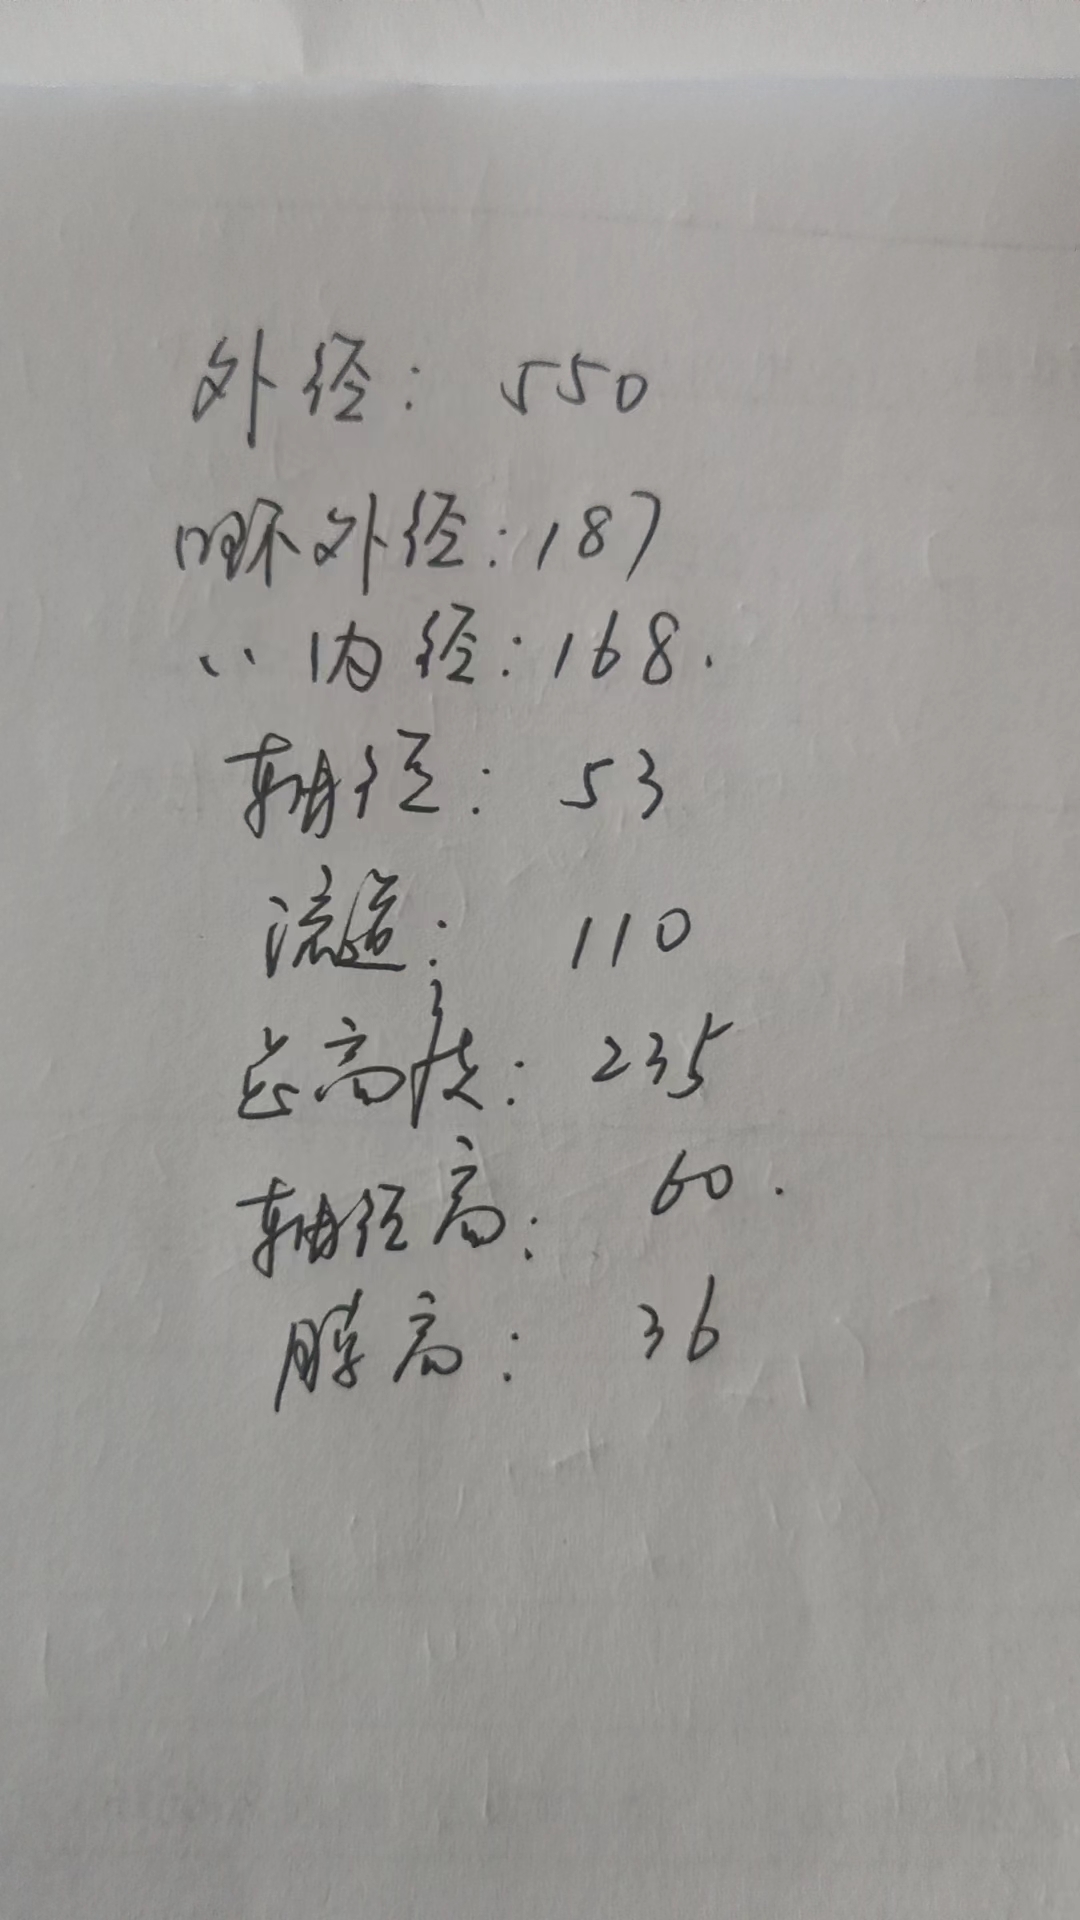 外径: 550
口环外径: 187
〃 内径: 168.
轴径: 53
流道: 110
总高度: 235
轴径高: 60.
脖高: 36